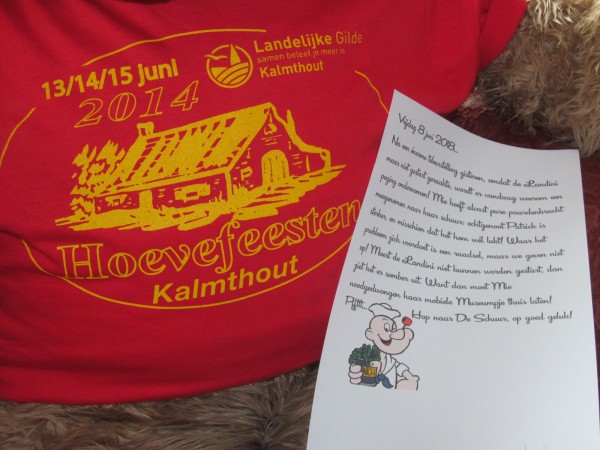 13/14/15 juni
2014
Landelijke Gilde
samen beleef je meer in
Kalmthout
Hoevefeesten
Kalmthout
Vrijdag 8 juni 2018...
Na een enorme teleurstelling gisteren, omdat de Landini
maar niet gestart geraakte, wordt er vandaag weerom een
poging ondernomen! Mie heeft alvast pure paardenkracht
meegenomen naar haar schuur: echtgenoot Patrick is
sterker, en misschien dat het hem wél lukt! Waar het
probleem zich voordoet is een raadsel, maar we geven niet
op! Moest de Landini niet kunnen worden gestart, dan
ziet het er somber uit. Want dan moet Mie
noodgedwongen haar mobiele Museumpje thuis laten!
Pffff...
Hop naar De Schuur, op goed geluk!